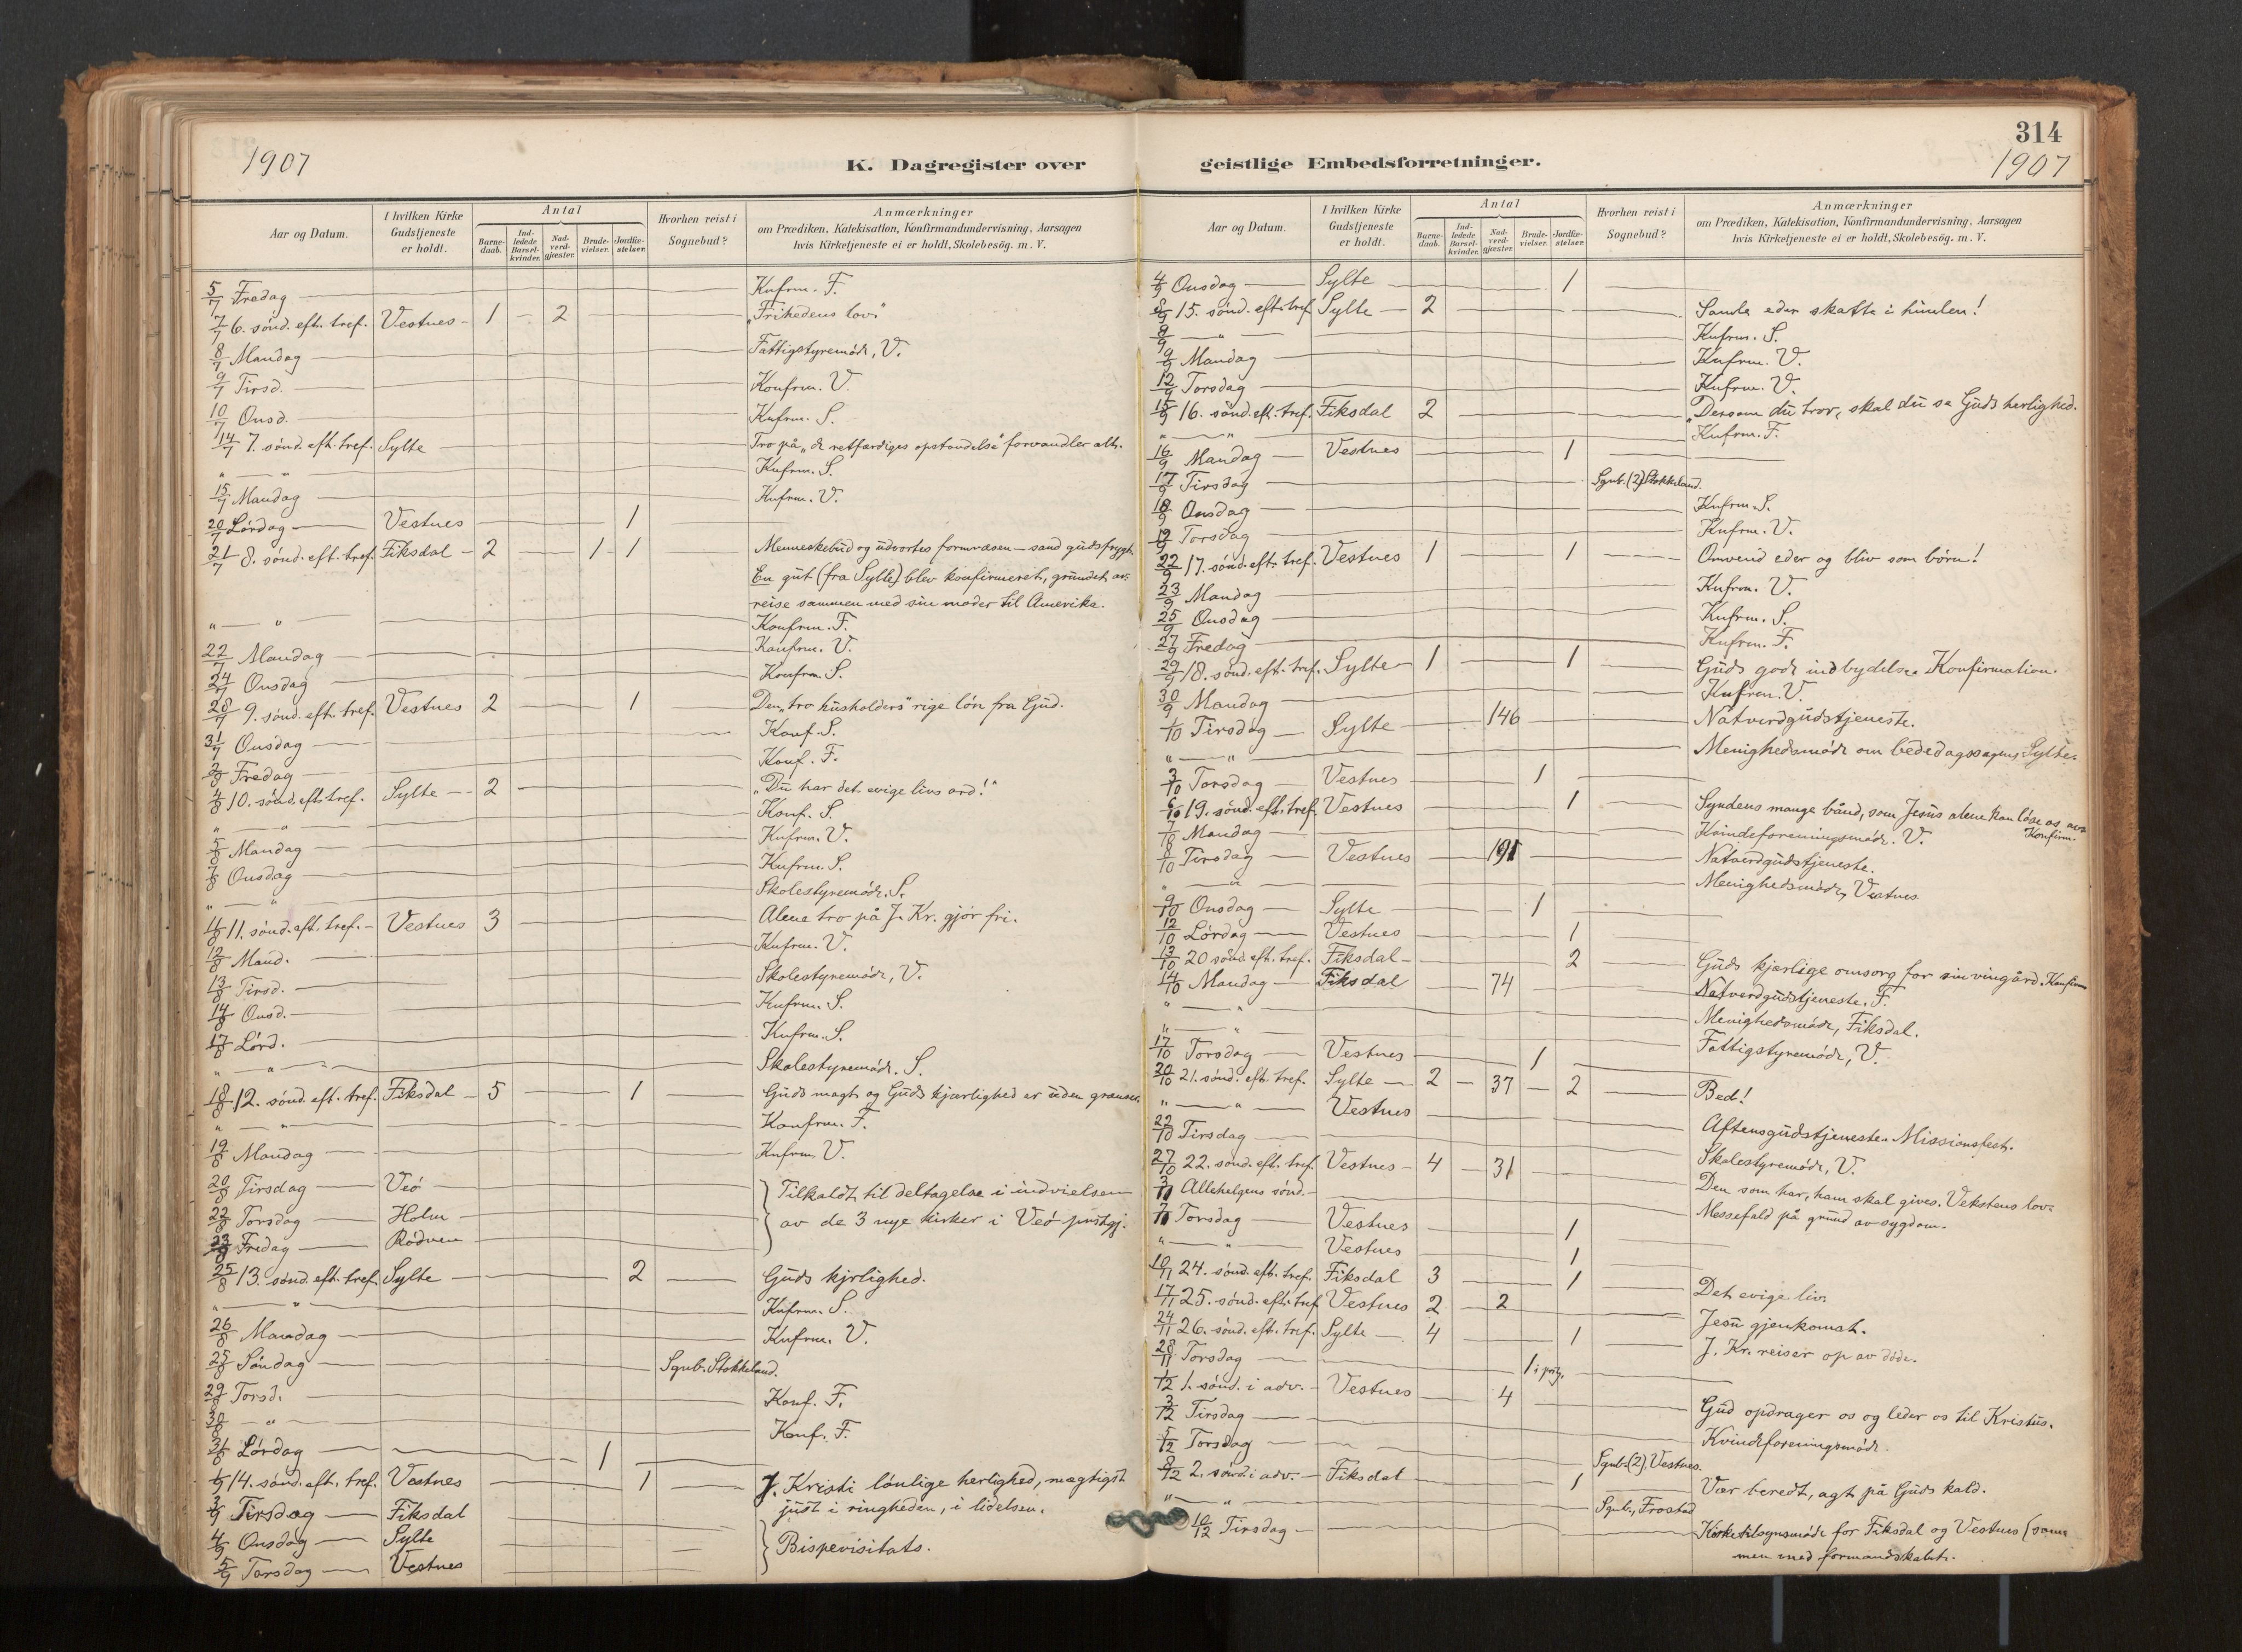 1907
K. Dagregister over
Aar og Datum.
I hvilken Kirke Gudstjeneste er holdt.
Antal
Barne-daab.
Ind-ledede Barsel-kvinder.
Nad-verd-gjæster.
Brude-vielser.
Jordfæ-stelser.
Hvorhen reist i Sognebud?
Anmærkninger
om Prædiken, Katekisation, Konfirmandundervisning, Aarsagen
hvis Kirketjeneste ei er holdt, Skolebesøg. m. V.
5/7 Fredag Knfrm. F.
7/7 6. sønd. eft. tref. Vestnes 1 2 "Frihedens lov."
8/7 Mandag Fattigstyremöde, V.
9/7 Tirsd. Konfrm. V.
10/7 Onsd. Knfrm. S.
14/7 7. sønd. eft. tref. Sylte Tro på "de retfærdiges opstandelse" forvandler alt.
" " Knfrm. S.
15/7 Mandag Knfrm. V.
20/7 Lørdag Vestnes 1
21/7 8. sønd. eft. tref. Fiksdal 2 1 1 Menneskebud og udvortes formvæsen – sand gudsfrygt.
En gut (fra Sylte) blev konfirmeret, grundet av-
reise sammen med sin moder til Amerika.
" " Konfrm. F.
22/7 Mandag Konfrm. V.
24/7 Onsdag Konfrm. S.
28/7 9. sønd. eft. tref. Vestnes 2 1 Den "tro husholders" rige lön fra Gud.
31/7 Onsdag Konf. S.
2/8 Fredag Konf. F.
4/8 10. sønd. eft. tref. Sylte 2 "Du har det evige livs ord!"
" " Konf. S.
5/8 Mandag Knfrm. V.
7/8 Onsdag Knfrm. S.
" " Skolestyremöde. S.
11/8 11. sønd. eft. tref. Vestnes 3 Alene tro på J. Kr. gjør fri.
12/8 Mand. Knfrm. V.
13/8 Tirsd. Skolestyremöde, V.
14/8 Onsd. Knfrm. S.
17/8 Lörd. Knfrm. S.
" " Skolestyremöde. S.
18/8 12. sønd. eft. tref. Fiksdal 5 1 Guds magt og Guds kjærlighed er uden grænser.
" " Konfrm. F.
19/8 Mandag Knfrm. V.
20/8 Tirsdag Veö } Tilkaldt til deltagelse i indvielsen
22/8 Torsdag Holm av de 3 nye kirker i Veö prstgj.
23/8 Fredag Rödven
25/8 13. sønd. eft. tref. Sylte 2 Guds kjrlighed.
" " Knfrm. S.
26/8 Mandag Knfrm. V.
25/8 Søndag Sgnb. Stokkeland.
29/8 Torsd. Konf. F.
30/8 " Konf. F.
31/8 Lørdag 1
1/9 14. sønd. eft. tref. Vestnes 1 J. Kristi lönlige herlighed, mægtigst
just i ringheden, i lidelsen.
3/9 Tirsdag Fiksdal
4/9 Onsdag Sylte } Bispevisitats.
5/9 Torsdag Vestnes
314
1907
geistlige Embedsforretninger.
Aar og Datum.
I hvilken Kirke Gudstjeneste er holdt.
Antal
Barne-daab.
Ind-ledede Barsel-kvinder.
Nad-verd-gjæster.
Brude-vielser.
Jordfæ-stelser.
Hvorhen reist i Sognebud?
Anmærkninger
om Prædiken, Katekisation, Konfirmandundervisning, Aarsagen
hvis Kirketjeneste ei er holdt, Skolebesøg. m. V.
4/9 Onsdag Sylte 1
8/9 15. sønd. eft. tref. Sylte 2 Samle eder skatte i himlen!
8/9 " Knfrm. S.
9/9 Mandag Knfrm. V.
12/9 Torsdag Knfrm. V.
15/9 16. sønd. eft. tref. Fiksdal 2 "Dersom du tror, skal du se Guds herlighed.
" " Knfrm. F.
16/9 Mandag Vestnes 1
17/9 Tirsdag Sgnb. (2) Stokkeland.
18/9 Onsdag Knfrm. S.
19/9 Torsdag Knfrm. V.
22/9 17. sønd. eft. tref. Vestnes 1 1 Omvend eder og bliv som börn!
23/9 Mandag Knfrm. V.
25/9 Onsdag Knfrm. S.
27/9 Fredag Knfrm. F.
29/9 18. sønd. eft. tref. Sylte 1 1 Guds gode indbydelse. Konfirmation.
30/9 Mandag Knfrm. V.
1/10 Tirsdag Sylte 146 Natverdgudstjeneste.
" " Menighedsmöde om bededagssagen, Sylte.
3/10 Torsdag Vestnes 1
6/10 19. sønd. eft. tref. Vestnes 1 Syndens mange bånd, som Jesus alene kan löse os av. Konfirm.
7/10 Mandag Kvindeforeningsmöde. V.
8/10 Tirsdag Vestnes 191 Natverdgudstjeneste.
" " Menighedsmöde, Vestnes
9/10 Onsdag Sylte 1
12/10 Lørdag Vestnes 1
13/10 20 sønd. eft. tref. Fiksdal 2 Guds kjærlige omsorg for sin vingård. Konfirm
14/10 Mandag Fiksdal 74 Natverdgudstjeneste. F.
" " Menighedsmöde, Fiksdal.
" " Fattigstyremöde, V.
17/10 Torsdag Vestnes 1
20/10 21. sønd. eft. tref. Sylte 2 37 2 Bed!
" " Vestnes Aftensgudstjeneste. Missionsfest.
22/10 Tirsdag Skolestyremöde, V.
27/10 22. sønd. eft. tref. Vestnes 4 31 Den som har, ham skal gives. Vekstens lov.
3/11 Allehelgens sønd. Messefald på grund av sygdom.
7/11 Torsdag Vestnes 1
" " Vestnes 1
10/11 24. sønd. eft. tref. Fiksdal 3 1 Det evige liv.
17/11 25. sønd. eft. tref. Vestnes 2 2 Jesu gjenkomst.
24/11 26. sønd. eft. tref. Sylte 4 1 J. Kr. reiser op av döde.
28/11 Torsdag 1
1/12 1. sønd. i adv. Vestnes 4 Gud opdrager os og leder os til Kristus.
3/12 Tirsdag Kvindeforeningsmöde.
5/12 Torsdag Sgnb. (2), Vestnes.
8/12 2. sønd. i adv. Fiksdal 1 Vær beredt, agt på Guds kald.
" " Sgnb., Frostad
10/12 Tirsdag Kirketilsynsmöde for Fiksdal og Vestnes (sam-
men med formandskabet.